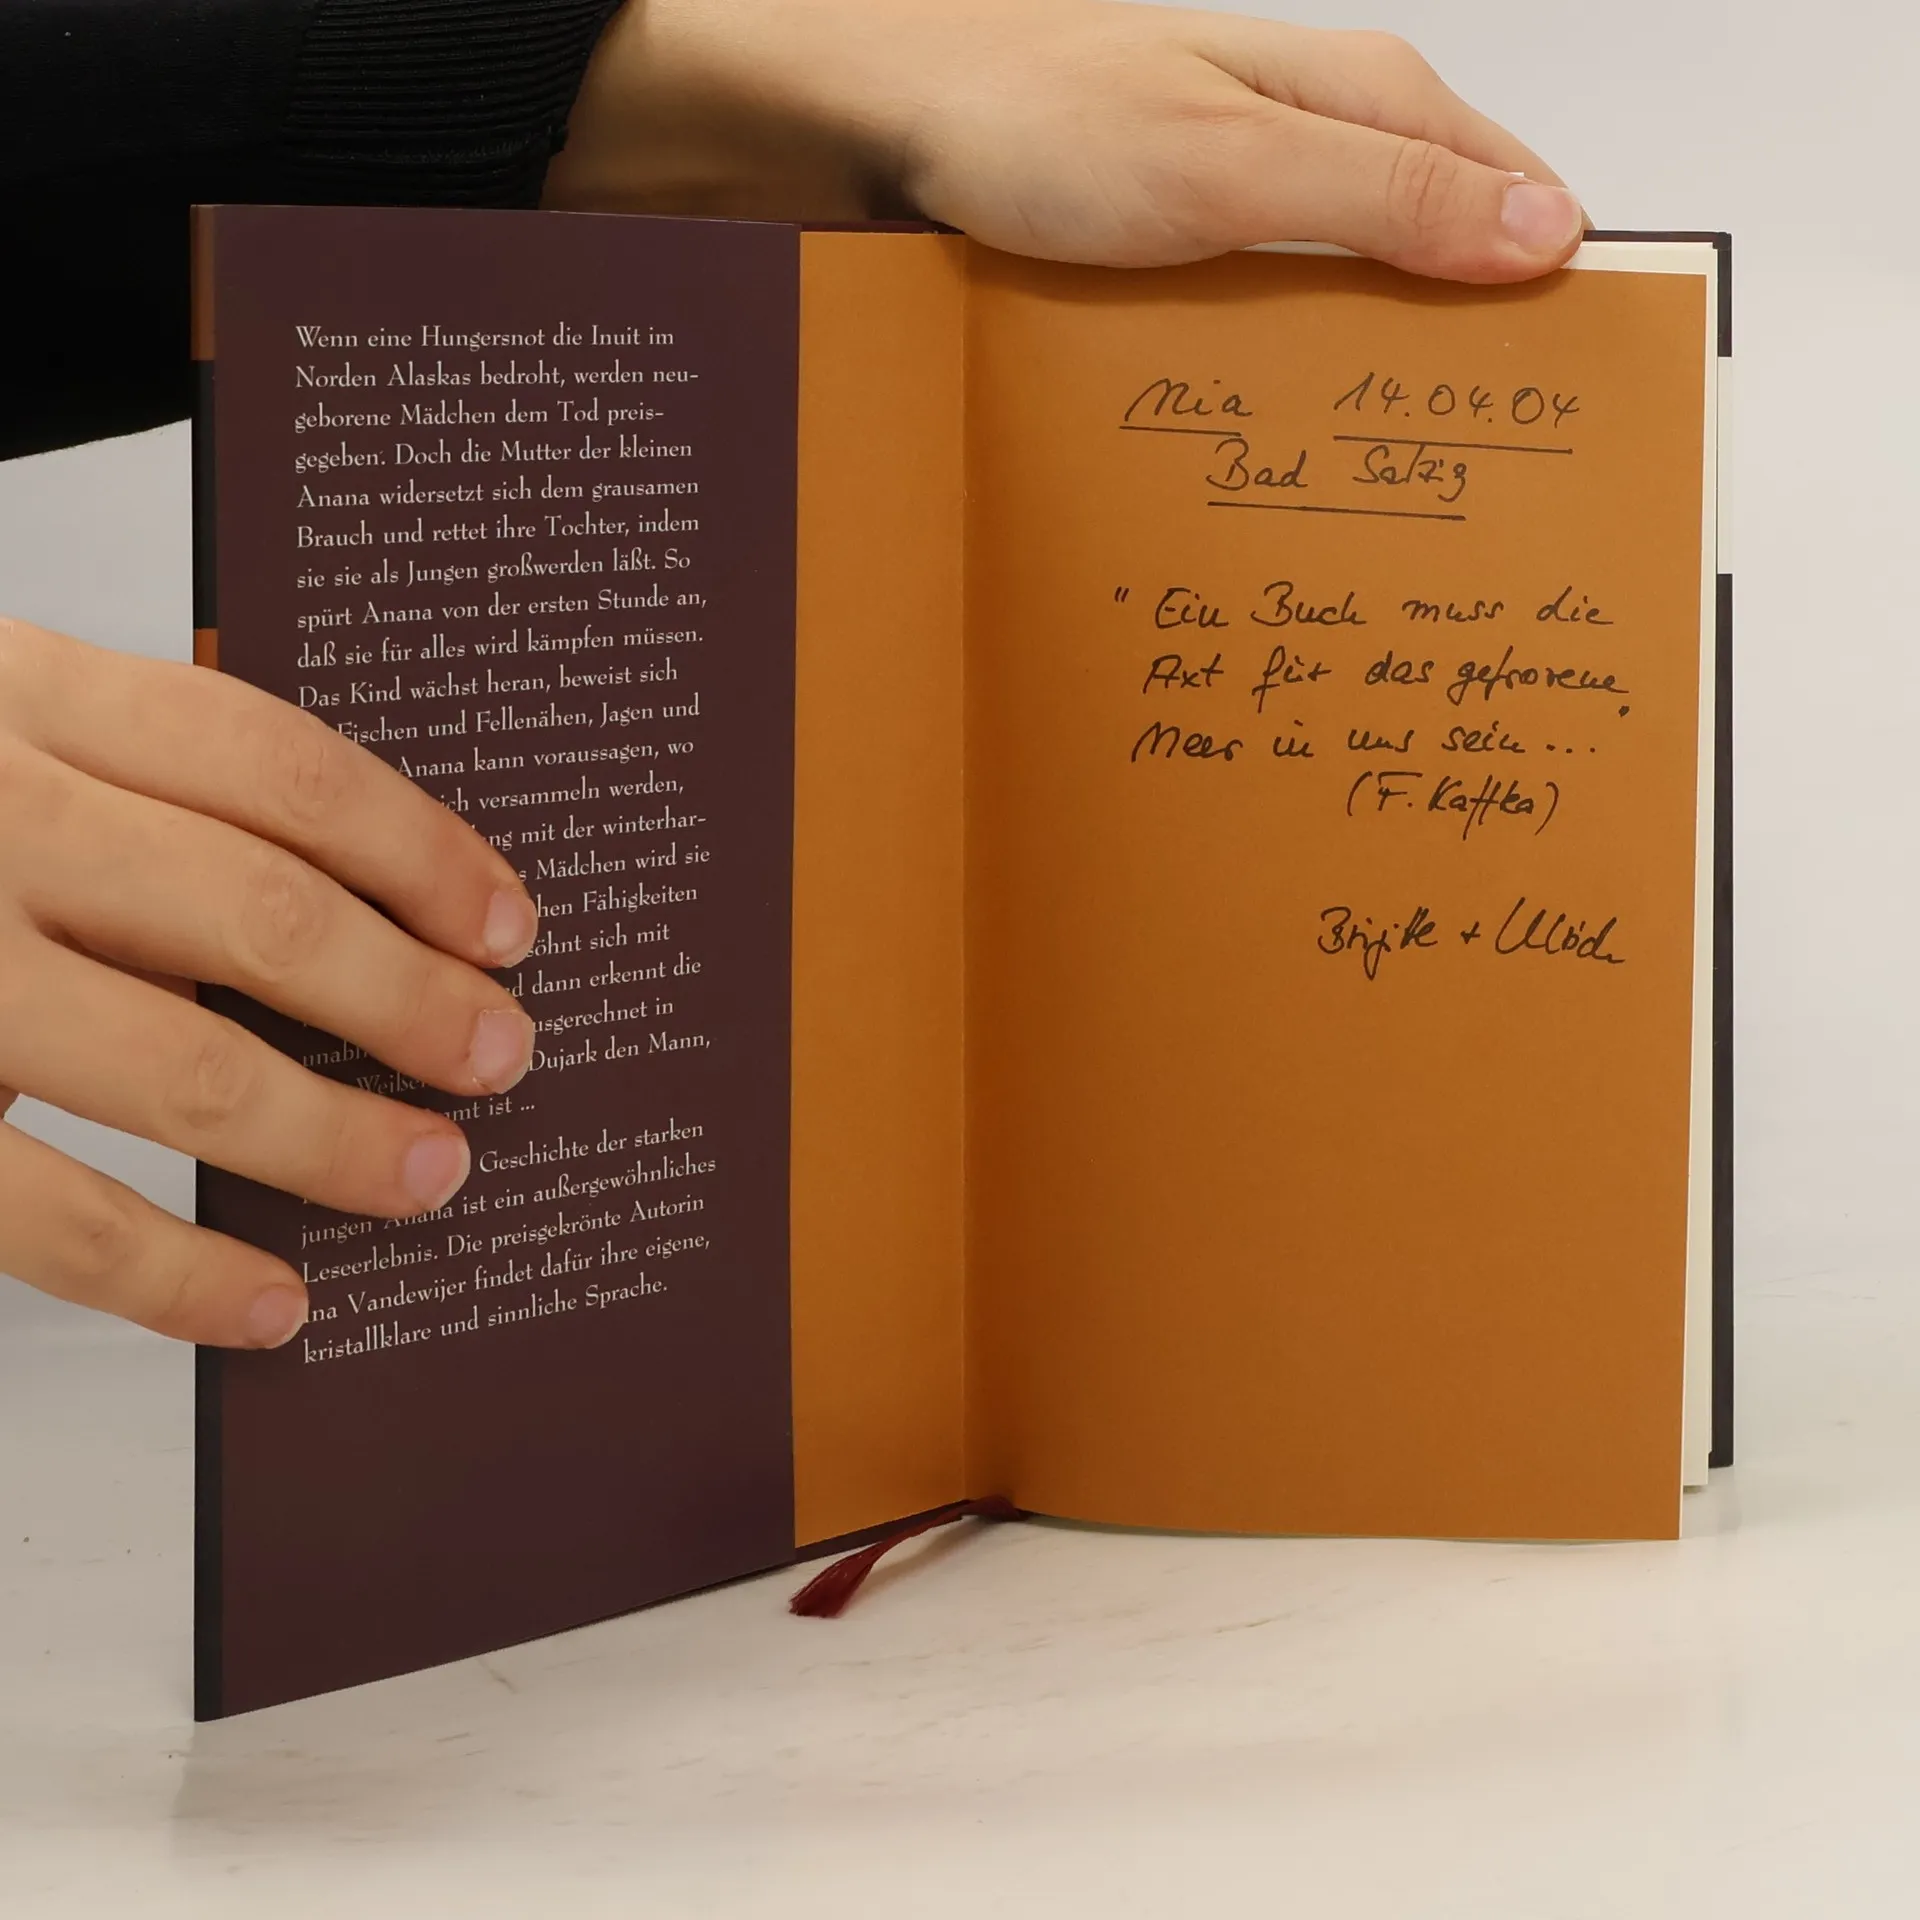 Wenn eine Hungersnot die Inuit im
Norden Alaskas bedroht, werden neu-
geborene Mädchen dem Tod preis-
gegeben. Doch die Mutter der kleinen
Anana widersetzt sich dem grausamen
Brauch und rettet ihre Tochter, indem
sie sie als Jungen großwerden läßt. So
spürt Anana von der ersten Stunde an,
daß sie für alles wird kämpfen müssen.
Das Kind wächst heran, beweist sich
Fischen und Fellenähen, Jagen und
Anana kann voraussagen, wo
ich versammeln werden,
ng mit der winterhar-
s Mädchen wird sie
hen Fähigkeiten
söhnt sich mit
d dann erkennt die
usgerechnet in
unabh Dujark den Mann,
Weiße
mt ist ...
Geschichte der starken
jungen Anana ist ein außergewöhnliches
Leseerlebnis. Die preisgekrönte Autorin
Ina Vandewijer findet dafür ihre eigene,
kristallklare und sinnliche Sprache.
Mia 14.04.04
Bad Salzig
" Ein Buch muss die
Axt für das gefrorene
Meer in uns sein ...
(F. Kaffka)
Brigitte +